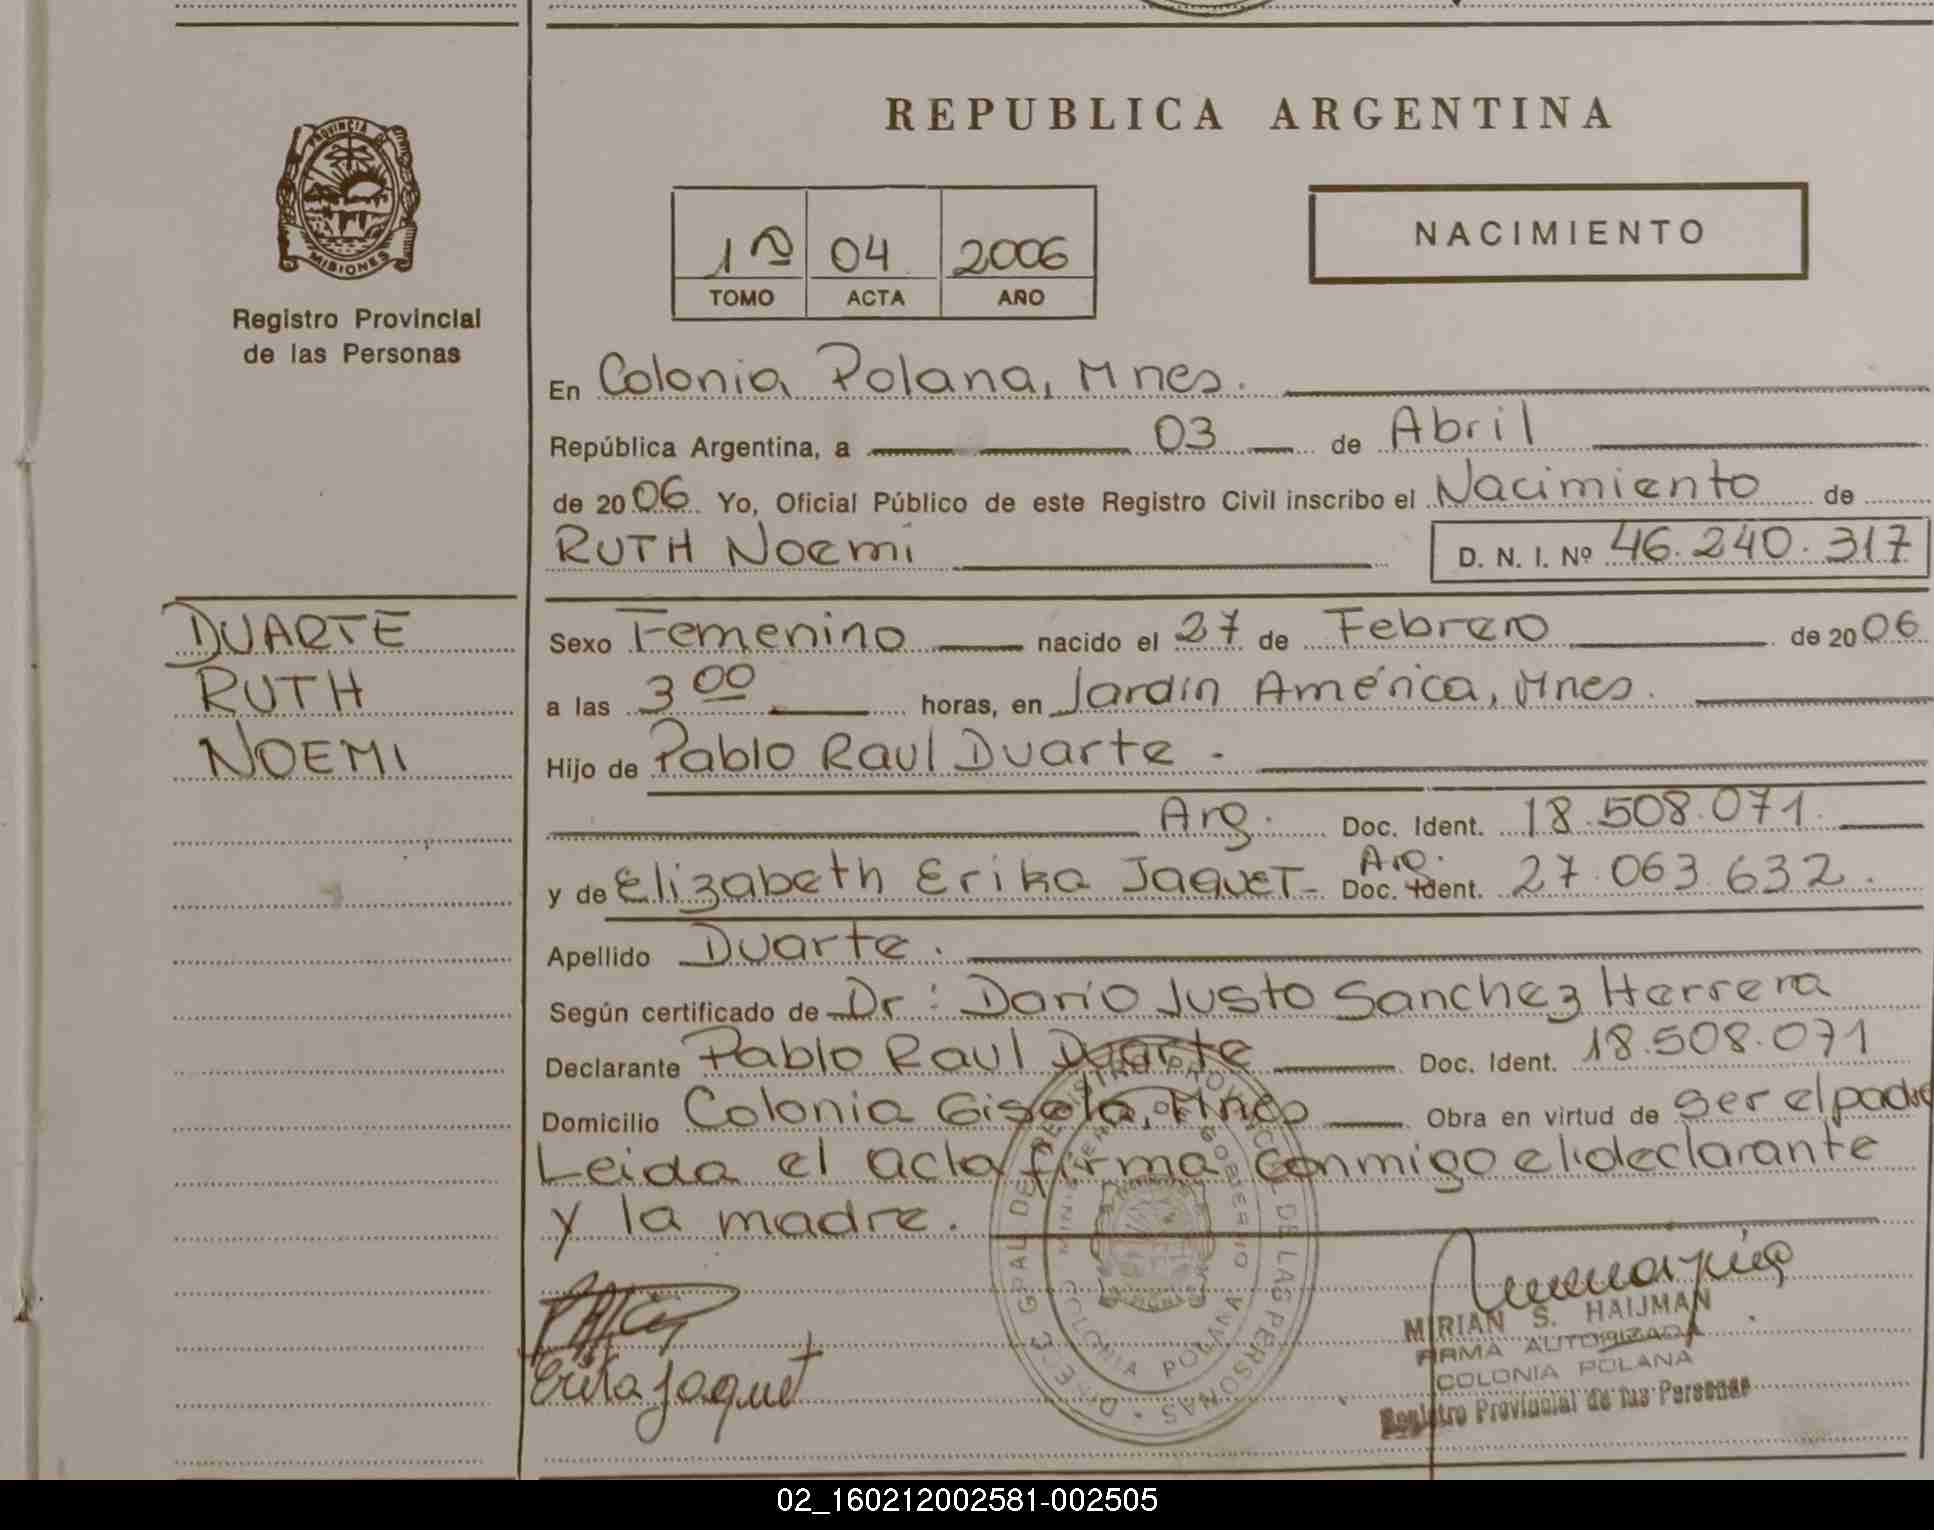 REPUBLICA ARGENTINA
PROVINCIA DE
MISIONES
Registro Provincial
de las Personas
1º 04 2006
TOMO ACTA AÑO
NACIMIENTO
En Colonia Polana, Mnes.
República Argentina, a 03 de Abril
de 2006 Yo, Oficial Público de este Registro Civil inscribo el Nacimiento de
RUTH Noemi D. N. I. Nº 46.240.317
DUARTE
RUTH
NOEMI
Sexo Femenino nacido el 27 de Febrero de 2006
a las 3 00 horas, en Jardín América, Mnes.
Hijo de Pablo Raul Duarte.
Arg. Doc. Ident. 18.508.071.
y de Elizabeth Erika JaqueT Arg. Doc. Ident. 27.063.632.
Apellido Duarte.
Según certificado de Dr: Darío Justo Sanchez Herrera
Declarante Pablo Raul Duarte Doc. Ident. 18.508.071
Domicilio Colonia Gisela, Mnes Obra en virtud de ser el padre
Leida el acta firma conmigo el declarante
y la madre.
Erika Jaquet
GRAL DE REGISTRO PROVINCIAL DE LAS PERSONAS
MINISTERIO DE GOBIERNO
COLONIA POLANA
MIRIAN S. HAIJMAN
FIRMA AUTORIZADA
COLONIA POLANA
Registro Provincial de las Personas
02_160212002581-002505